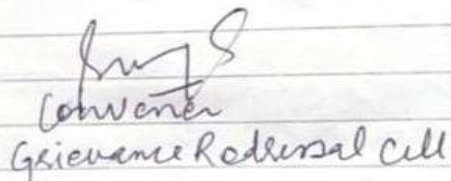 Convener
Grievance Redressal Cell